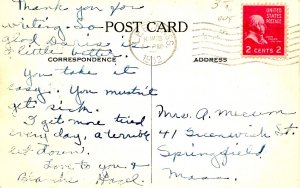 Thank you for
writing. So
glad is
a little better.
You take it
easy. You mustn't
get sick.
I get more tired
every day, a terrible
let down.
Love to you &
Hazel
POST CARD
CORRESPONDENCE
ADDRESS
1952
UNITED STATES
POSTAGE
2 CENTS 2
Mrs. A. Mecum
41 Greenwich St.
Springfield
Mass.